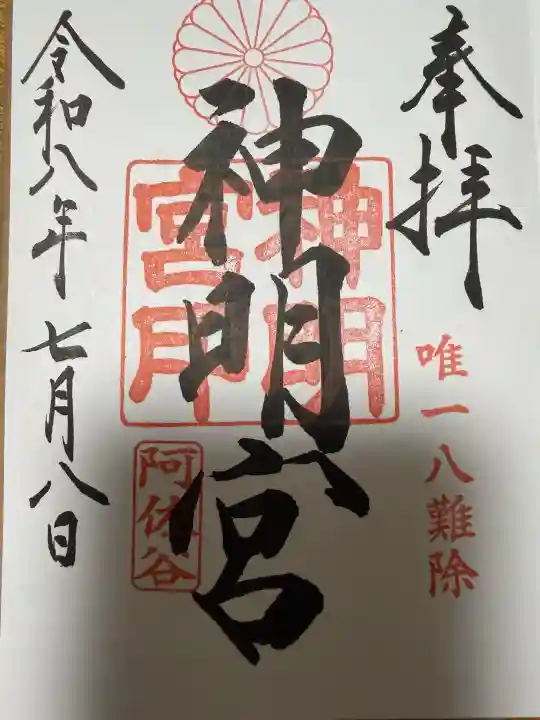 奉拝
唯一八難除
神明宮
神明
宮印
阿佐谷
令和八年七月八日